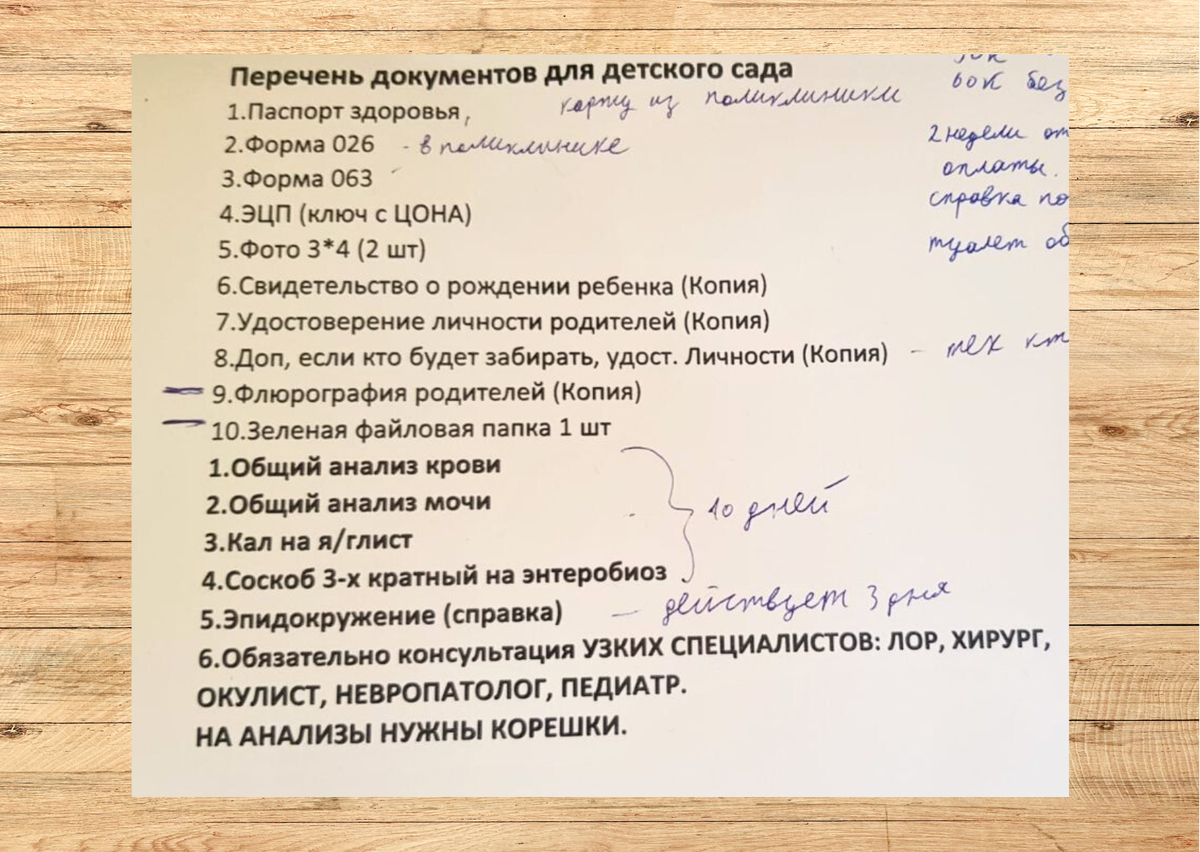 Перечень документов для детского сада
60К без
1.Паспорт здоровья, карту из поликлиники
2.Форма 026 - в поликлинике
2 недели от
3.Форма 063
оплаты.
4.ЭЦП (ключ с ЦОНА)
справка по
5.Фото 3*4 (2 шт)
туалет об
6.Свидетельство о рождении ребенка (Копия)
7.Удостоверение личности родителей (Копия)
8.Доп, если кто будет забирать, удост. Личности (Копия) - тех кт
9.Флюрография родителей (Копия)
10.Зеленая файловая папка 1 шт
1.Общий анализ крови
2.Общий анализ мочи
10 дней
3.Кал на я/глист
4.Соскоб 3-х кратный на энтеробиоз
5.Эпидокружение (справка) - действует 3 дня
6.Обязательно консультация УЗКИХ СПЕЦИАЛИСТОВ: ЛОР, ХИРУРГ,
ОКУЛИСТ, НЕВРОПАТОЛОГ, ПЕДИАТР.
НА АНАЛИЗЫ НУЖНЫ КОРЕШКИ.